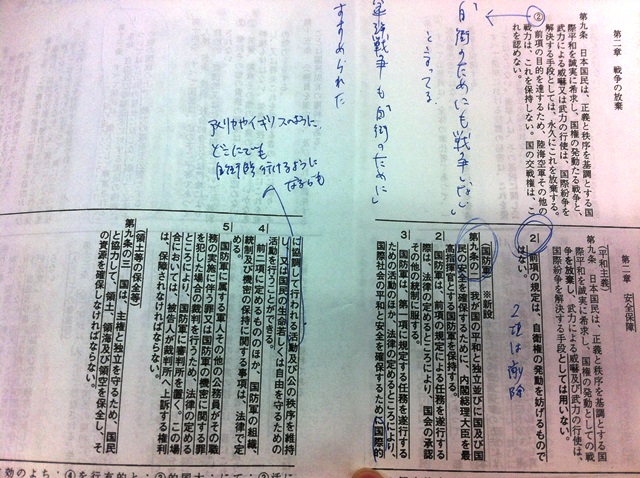 第二章　戦争の放棄
第九条　日本国民は、正義と秩序を基調とする国
際平和を誠実に希求し、国権の発動たる戦争と、
武力による威嚇又は武力の行使は、国際紛争を
解決する手段としては、永久にこれを放棄する。
②　前項の目的を達するため、陸海空軍その他の
戦力は、これを保持しない。国の交戦権は、こ
れを認めない。
と言ってる
も自衛のために
すすめられた
アメリカやイギリスのように
どこにでも
行けるように
なるかも
第二章　安全保障
（平和主義）
第九条　日本国民は、正義と秩序を基調とする国
際平和を誠実に希求し、国権の発動としての戦
争を放棄し、武力による威嚇及び武力の行使は、
国際紛争を解決する手段としては用いない。
２　前項の規定は、自衛権の発動を妨げるもので
はない。
２項は削除
（国防軍）　※新設
第九条の二　我が国の平和と独立並びに国及び国
民の安全を確保するために、内閣総理大臣を最
高指揮官とする国防軍を保持する。
２　国防軍は、前項の規定による任務を遂行する
際は、法律の定めるところにより、国会の承認
その他の統制に服する。
３　国防軍は、第一項に規定する任務を遂行する
ための活動のほか、法律の定めるところにより、
国際社会の平和と安全を確保するために国際的
に協調して行われる活動及び公の秩序を維持
し、又は国民の生命若しくは自由を守るための
活動を行うことができる。
４　前二項に定めるもののほか、国防軍の組織、
統制及び機密の保持に関する事項は、法律で定
める。
５　国防軍に属する軍人その他の公務員がその職
務の実施に伴う罪又は国防軍の機密に関する罪
を犯した場合の裁判を行うため、法律の定める
ところにより、国防軍に審判所を置く。この場
合においては、被告人が裁判所へ上訴する権利
は、保障されなければならない。
（領土等の保全等）
第九条の三　国は、主権と独立を守るため、国民
と協力して、領土、領海及び領空を保全し、そ
の資源を確保しなければならない。